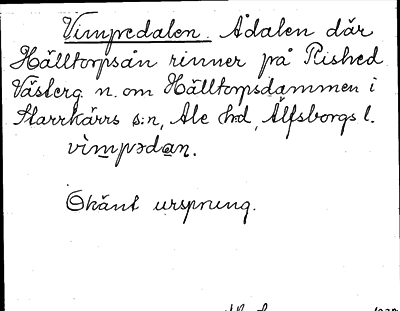 Vimpedalen. Ådalen där
Hälltorpsån rinner på Rished
Västerg. n. om Hälltorpsdammen i
Starrkärrs s:n, Ale h:d, Älfsborgs l.
vimpədan.
Okänt ursprung.